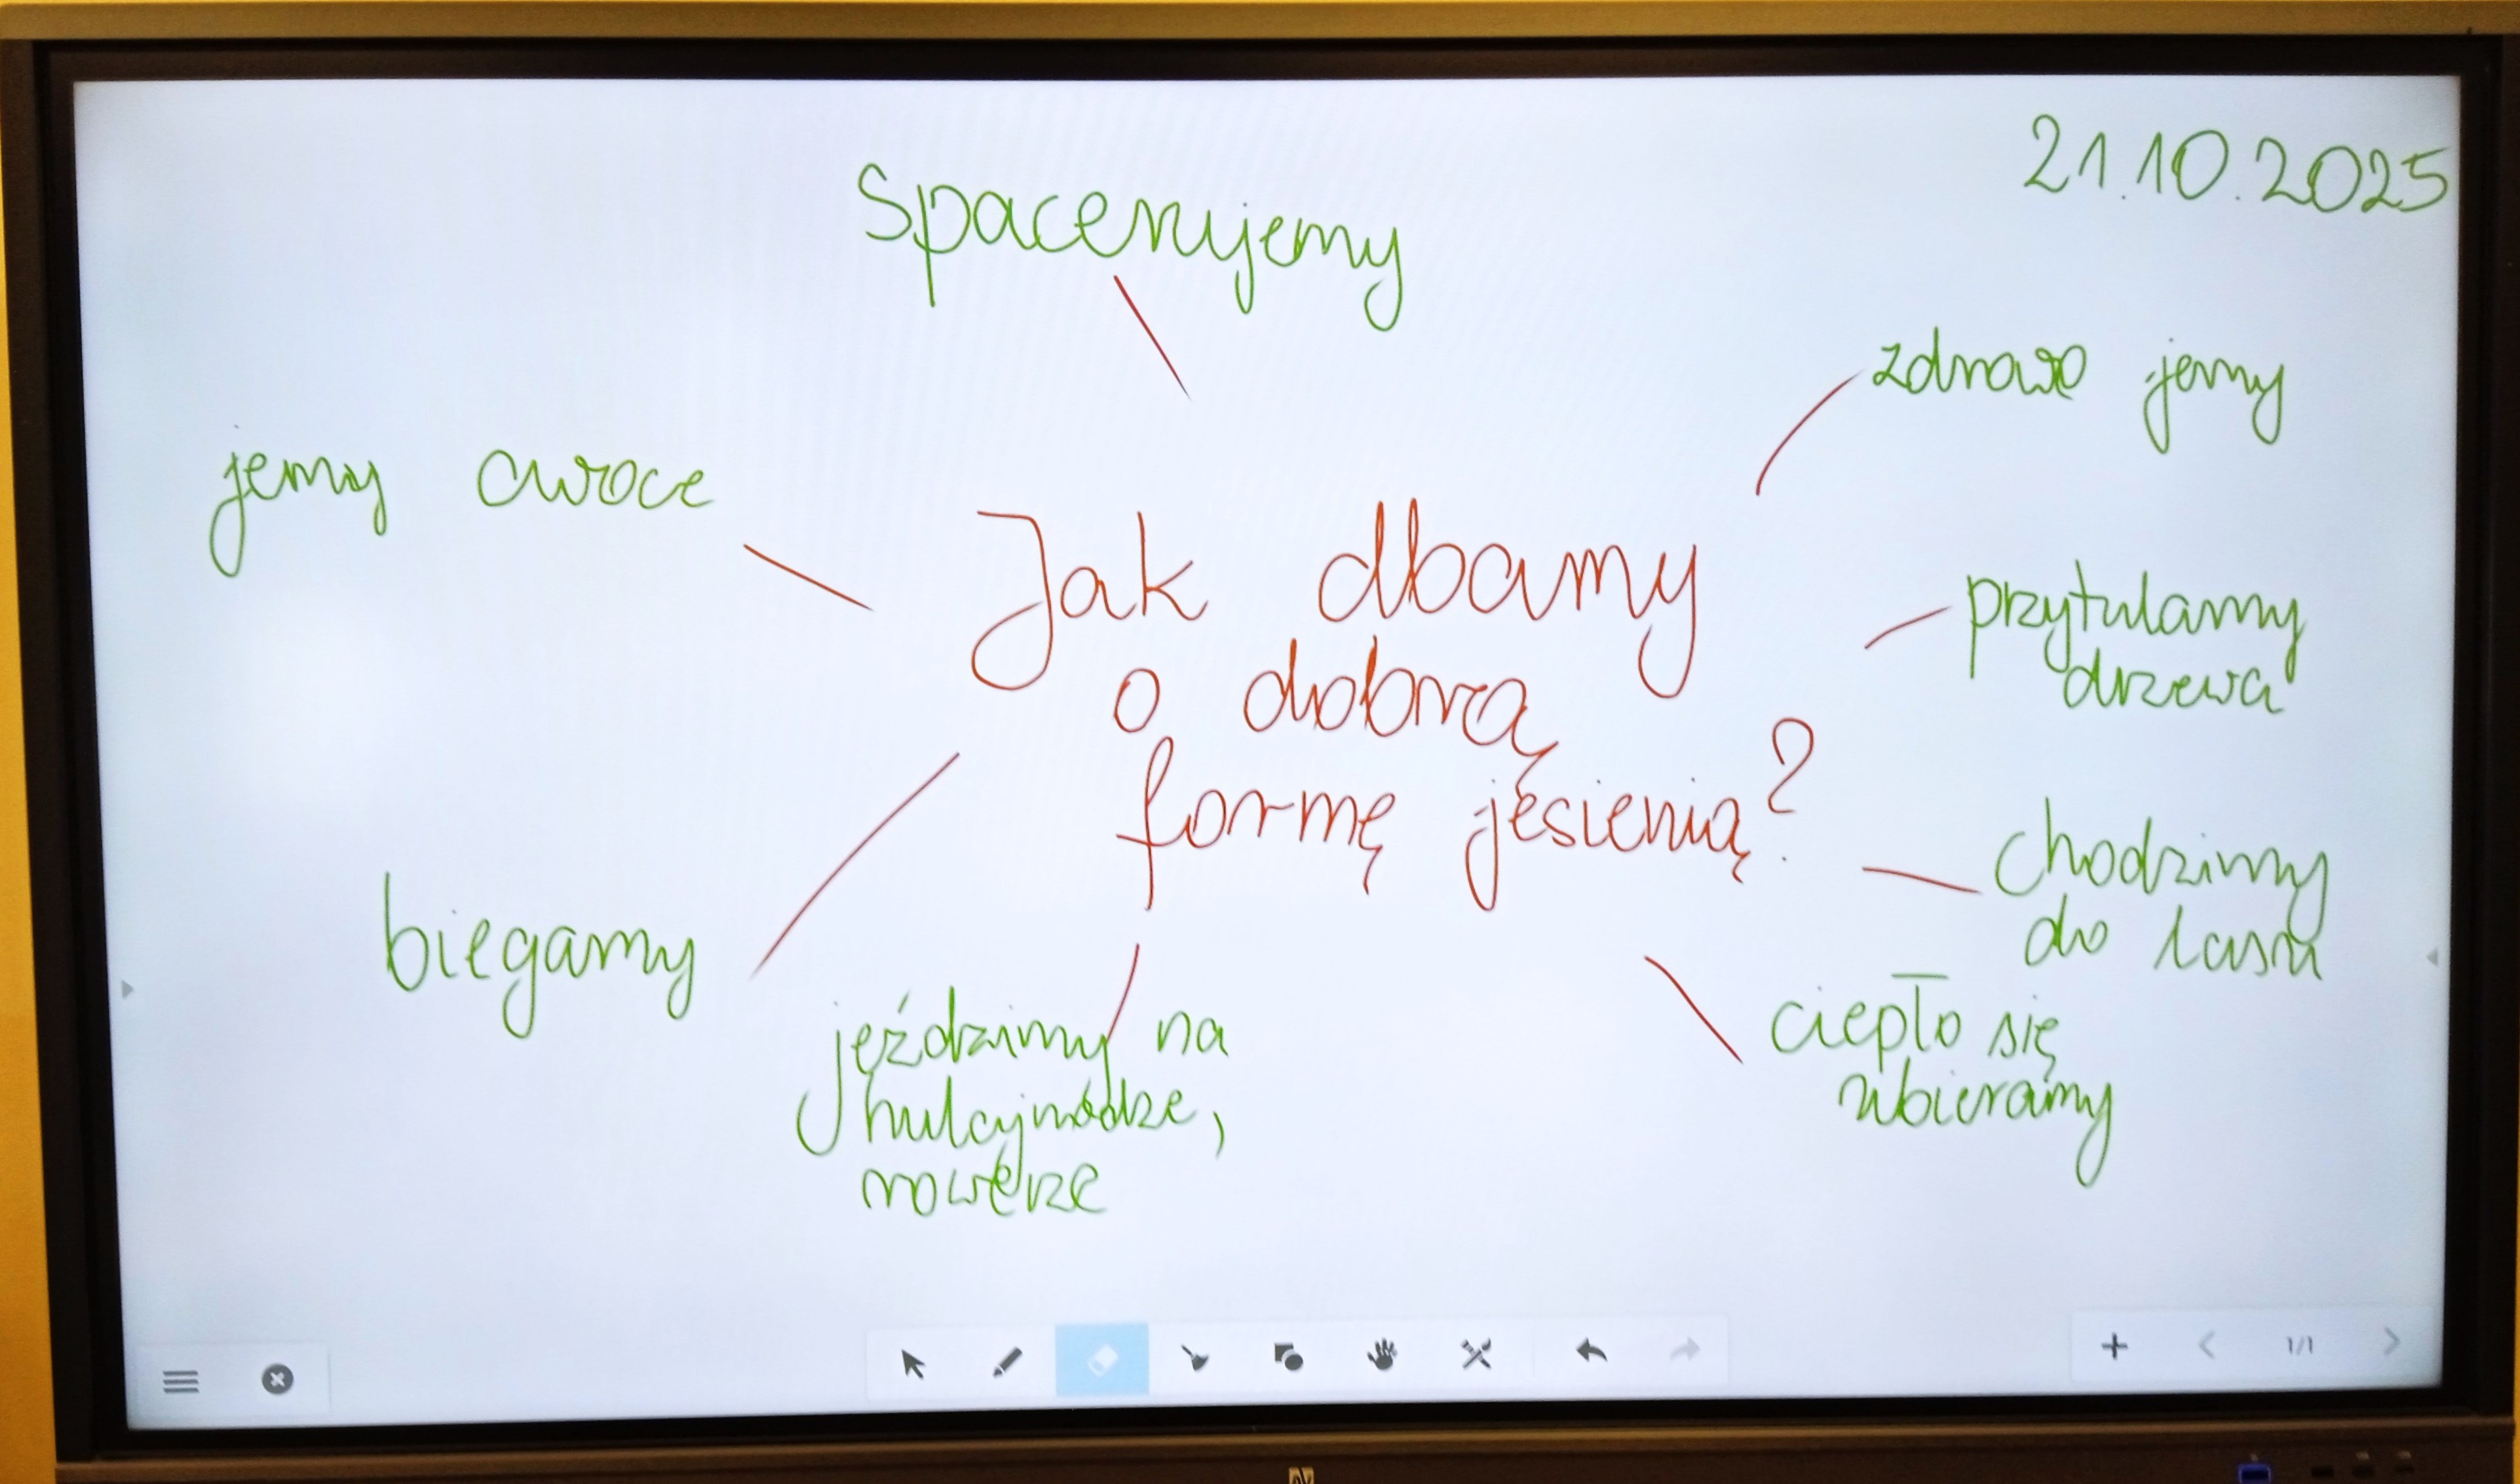 21.10.2025
Spacerujemy
zdrowo jemy
jemy owoce
Jak dbamy
o dobrą
formę jesienią?
przytulamy
drzewa
chodzimy
do lasu
biegamy
jeździmy na
hulajnodze,
rowerze
ciepło się
ubieramy
1/1